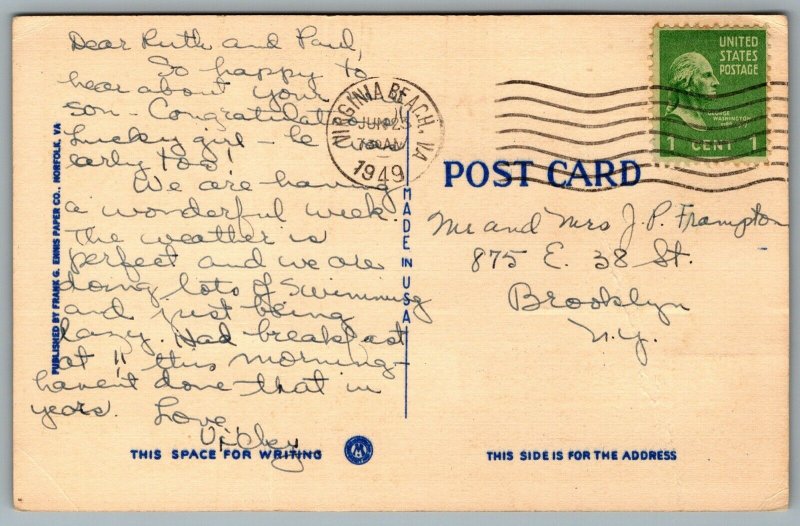 Dear Ruth and Paul,
So happy to
hear about your
son. Congratulations
Lucky girl - he was
early too!
We are having
a wonderful week.
The weather is
perfect and we are
doing lots of swimming
and just being
lazy. Had breakfast
at 11 this morning -
haven't done that in
years. Love
Vicky
THIS SPACE FOR WRITING
PUBLISHED BY FRANK G. ENNIS PAPER CO., NORFOLK, VA
MADE IN USA
VIRGINIA BEACH, VA
JUN 23
AM
1949
UNITED
STATES
POSTAGE
GEORGE
WASHINGTON
1 CENT 1
POST CARD
Mr and Mrs J. P. Frampton
875 E. 38 St.
Brooklyn
N.Y.
THIS SIDE IS FOR THE ADDRESS